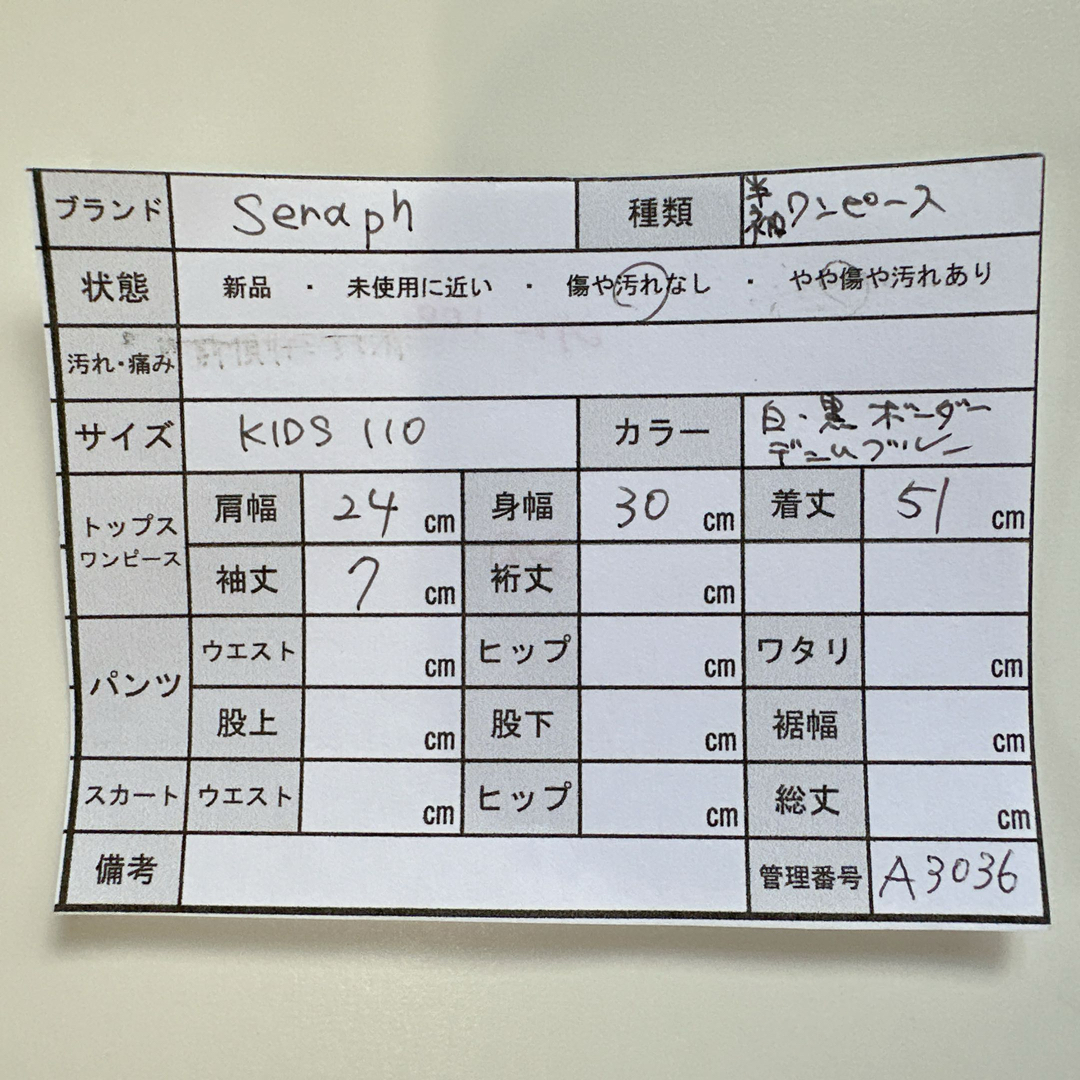 ブランド Seraph 種類 半袖ワンピース
状態 新品 ・ 未使用に近い ・ 傷や汚れなし ・ やや傷や汚れあり
汚れ・痛み
サイズ KIDS 110 カラー 白・黒 ボーダー
デニムブルー
トップス
ワンピース
肩幅 24 cm 身幅 30 cm 着丈 51 cm
袖丈 7 cm 裄丈 cm
パンツ
ウエスト cm ヒップ cm ワタリ cm
股上 cm 股下 cm 裾幅 cm
スカート ウエスト cm ヒップ cm 総丈 cm
備考 管理番号 A3036